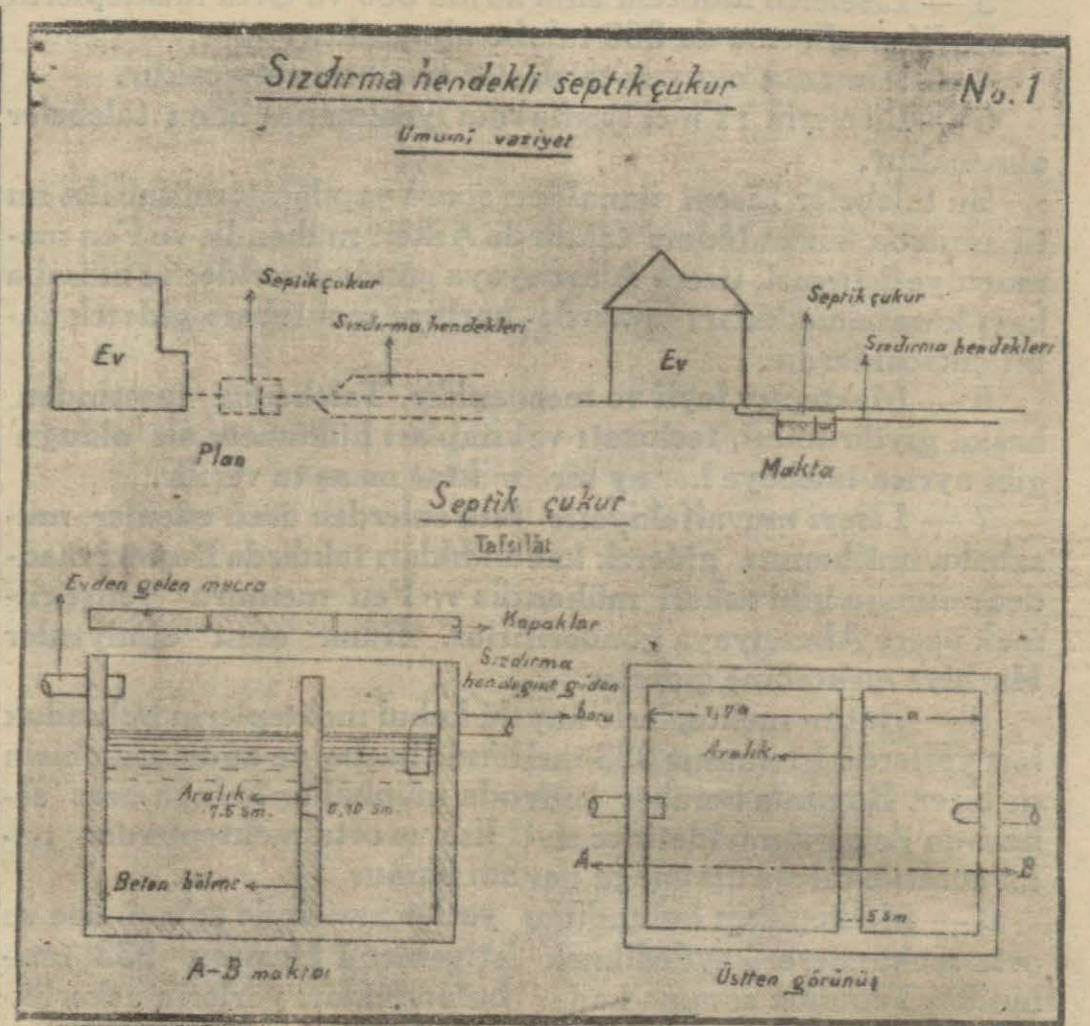 Sızdırma hendekli septik çukur
No. 1
Umumî vaziyet
Septik çukur
Sızdırma hendekleri
Ev
Plan
Septik çukur
Sızdırma hendekleri
Ev
Makta
Septik çukur
Tafsilât
Evden gelen mecra
Kapaklar
Sızdırma
giden
boru
Aralık
7.5 sm.
Beton bölme
A-B maktaı
a
Aralık
A
B
5 sm.
Üstten görünüş